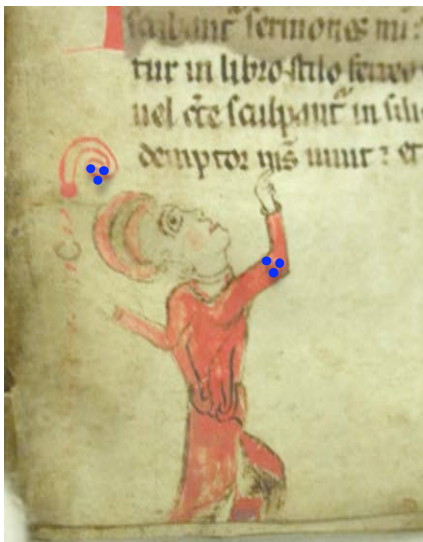 scribant᷑ sermones mi:
tur in libro stilo ferreo
uel c̄te sculpant᷑ in sili
demptor m̄s uiuit